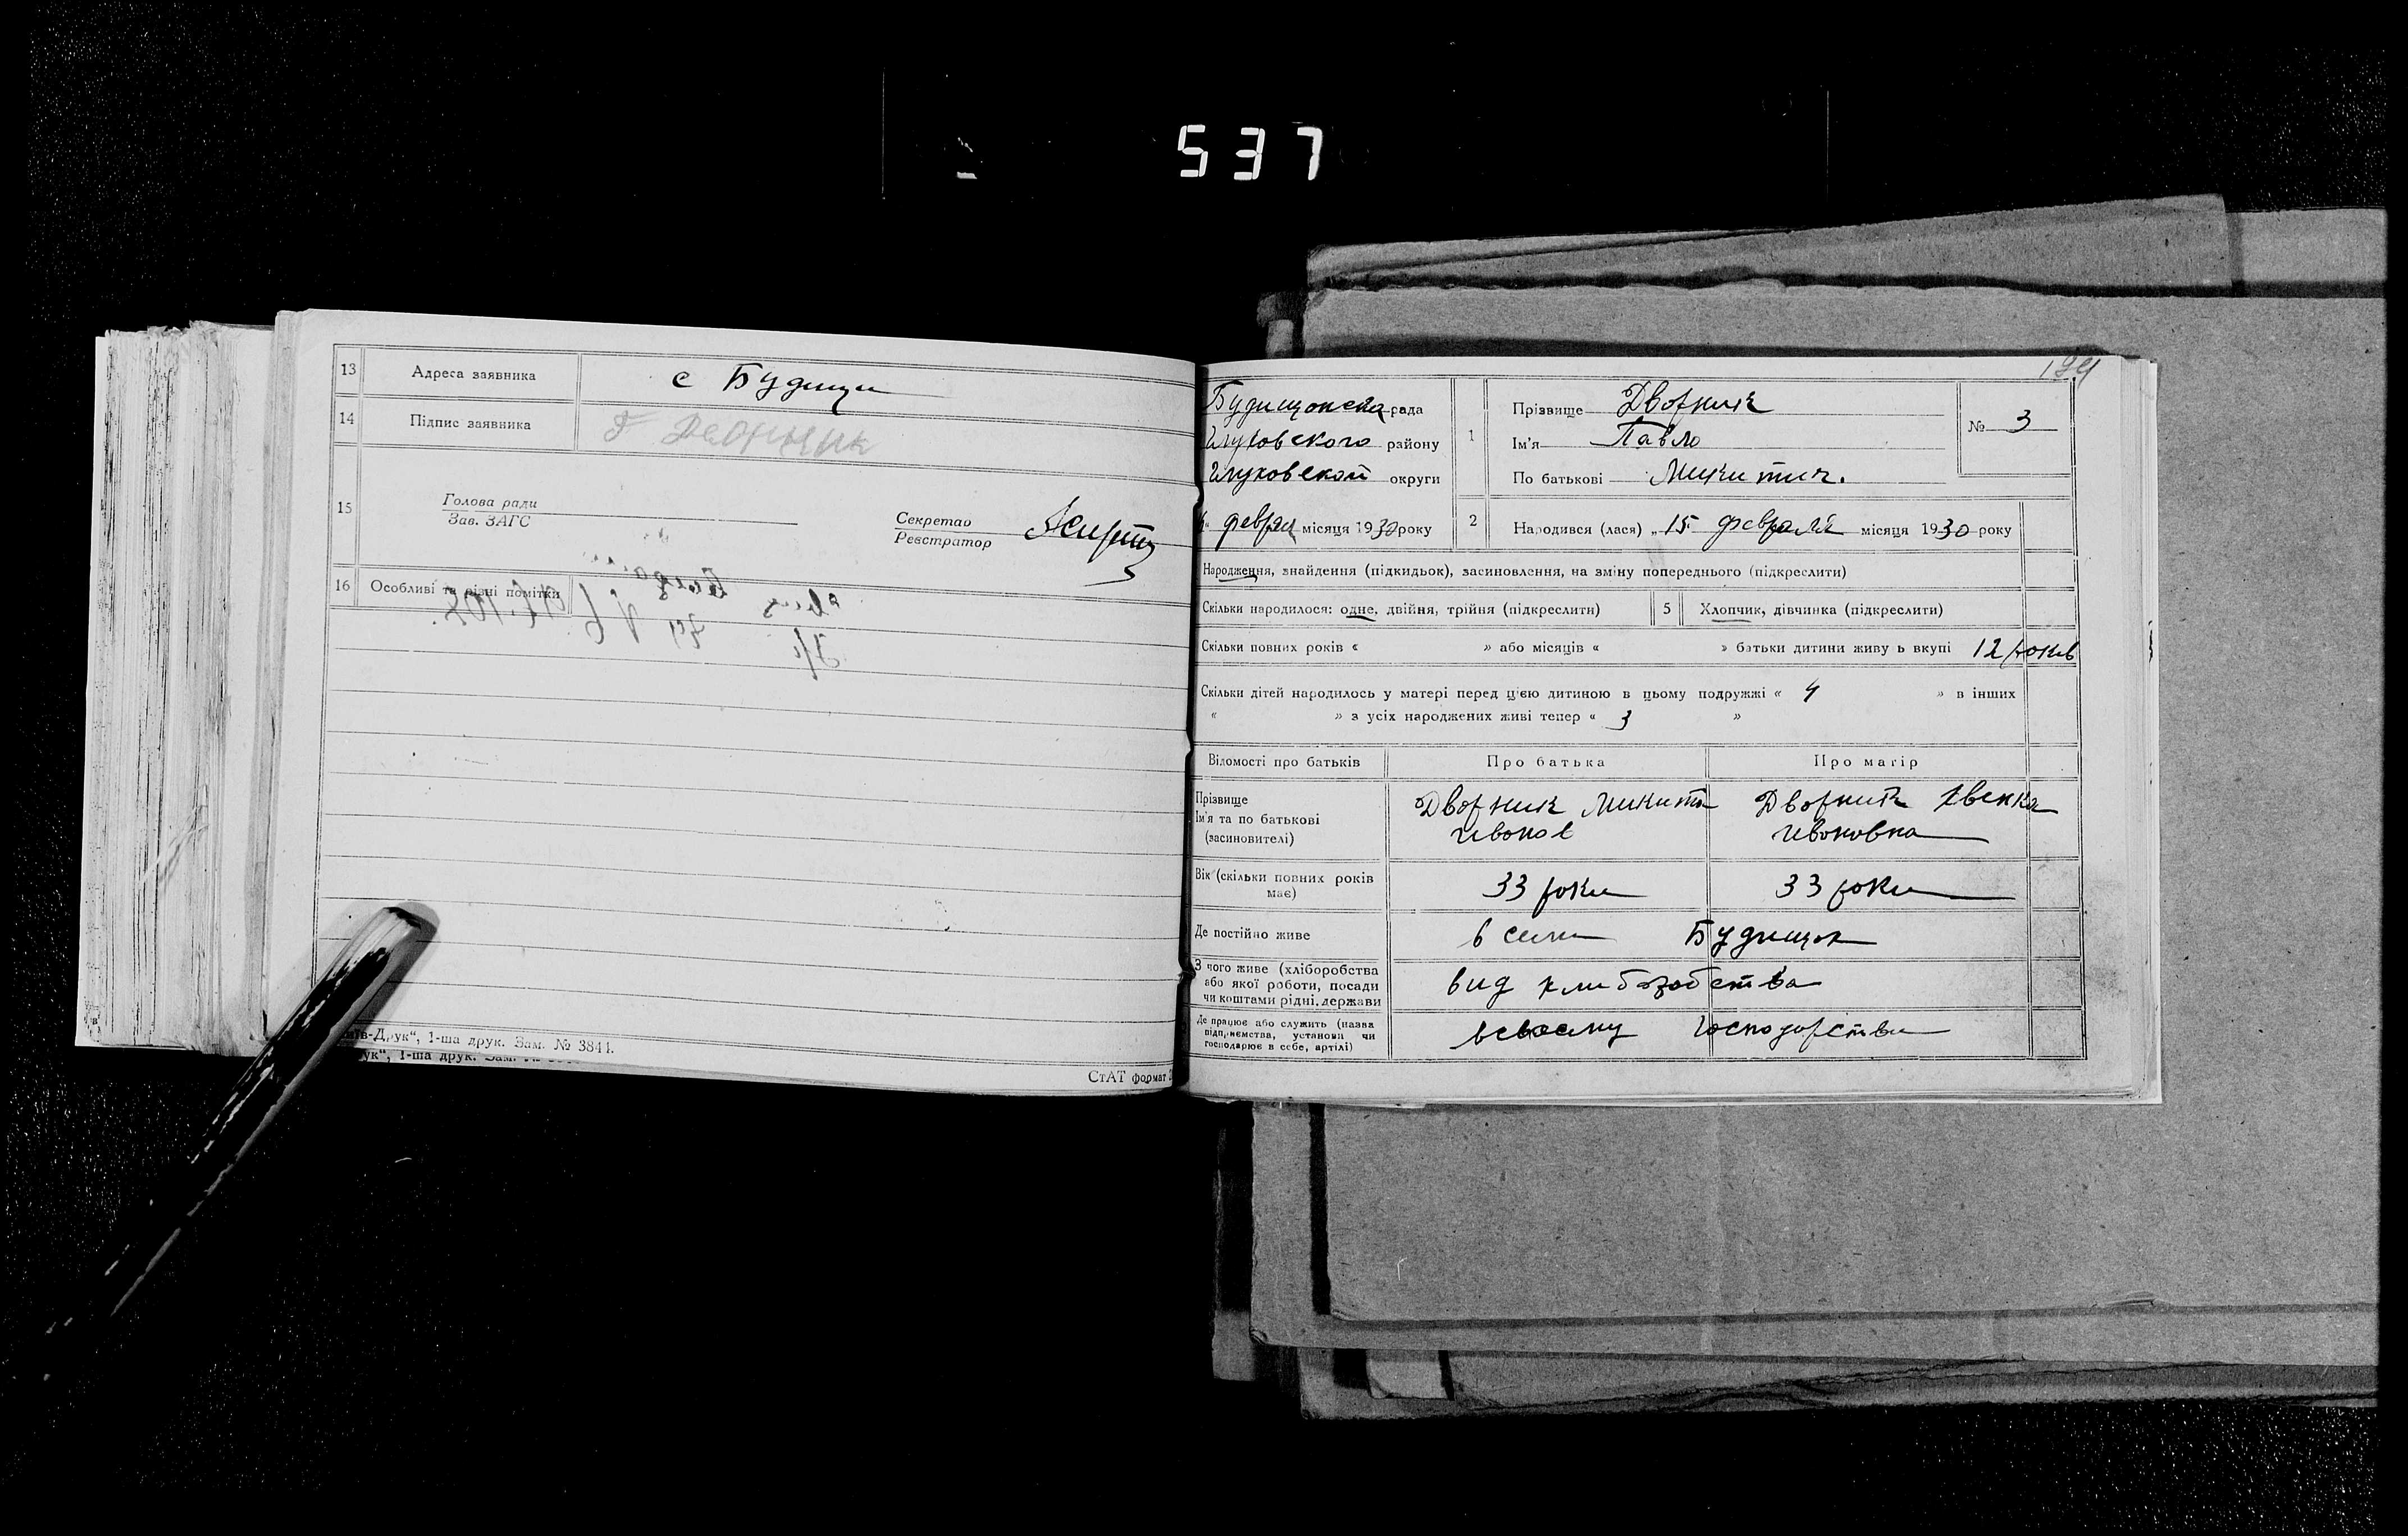 537
13 Адреса заявника с Будищи
14 Підпис заявника Дворник
15 Голова ради
Зав. ЗАГС
Секретар
Реєстратор
16 Особливі та різні помітки
1-ша друк. Зам. № 3841.
СтАТ формат
Будищанска рада
Глуховского району
Глуховской округи
февраля місяця 1930 року
1 Прізвище Дворник
Ім'я Павло
По батькові Микитич.
№ 3
2 Народився (лася) „15 февраля місяця 1930 року
Народження, знайдення (підкидьок), засиновлення, на зміну попереднього (підкреслити)
Скільки народилося: одне, двійня, трійня (підкреслити) 5 Хлопчик, дівчинка (підкреслити)
Скільки повних років « » або місяців « » батьки дитини живуть вкупі 12 років
Скільки дітей народилось у матері перед цією дитиною в цьому подружжі « 4 » в інших
« » з усіх народжених живі тепер « 3 »
Відомості про батьків Про батька Про матір
Прізвище
Ім'я та по батькові
(засиновителі)
Дворник Микита
Иванов
Дворник
Ивановна
Вік (скільки повних років має) 33 роки 33 роки
Де постійно живе в сели Будищах
З чого живе (хліборобства
або якої роботи, посади
чи коштами рідні, держави
вид хлиборобства
Де працює або служить (назва
підприємства, установи чи
господарює в себе, артілі)
всвоему господарстви